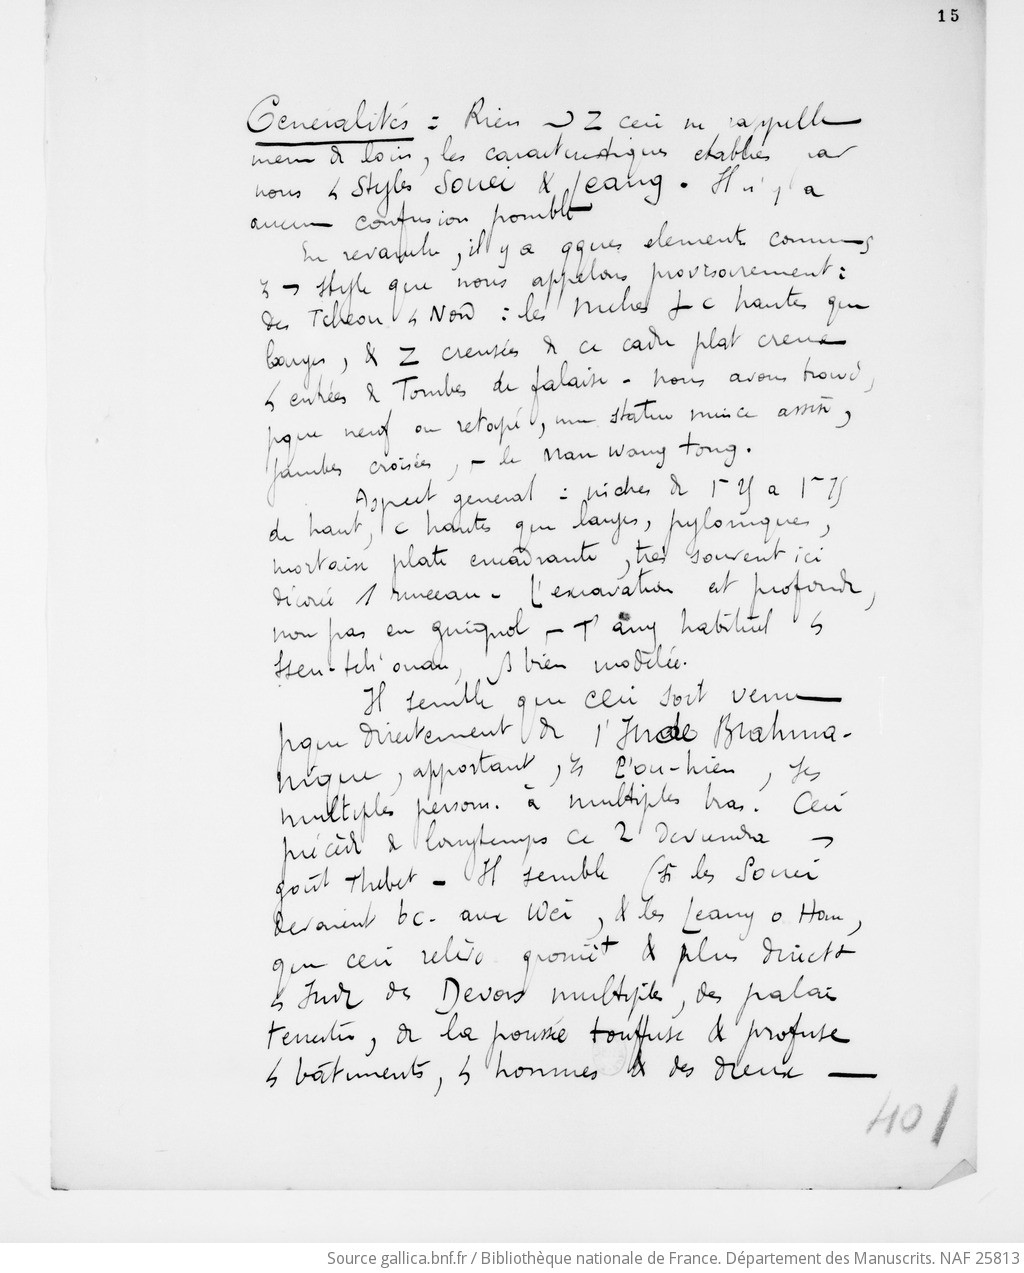 15
Généralités : Rien Z ceci ne rappelle
meme de loin, les caracteristiques etablies par
nous styles Souei & Leang. Il n'y a
aucune confusion possible
En revanche, il y a qques elements communs
style que nous appelons provisoirement :
des Tcheou Nord : les niches + c hautes que
larges, & Z creusées de ce cadre plat creusé
entrées & Tombes de falaise - nous avons trouvé,
pque neuf ou retapé, une statue mince assise,
jambes croisées, - le Nan Wang tong.
Aspect general : niches de 1m 25 a 1m 75
de haut, c hautes que larges, pyloniques,
mortaise plate encadrante, très souvent ici
décorée 1 rinceau - L'excavation est profonde,
non pas en guignol - T'ang habituel
Sseu-tch'ouan, bien modelée.
Il semble que ceci soit venu
pque directement de l'Inde Brahma-
nique, apportant, L'ou-hien, ses
multiples person. à multiples bras. Ceci
précède & longtemps ce 2 deviendra
goût Thibet - Il semble (si les Souei
devaient bc. aux Wei, & les Leang o Han,
que ceci relève & plus direct
Inde des Devas multiples, des palais
terrestres, de la poussée touffue & profuse
bâtiments, hommes & des dieux —
40
Source gallica.bnf.fr / Bibliothèque nationale de France. Département des Manuscrits. NAF 25813